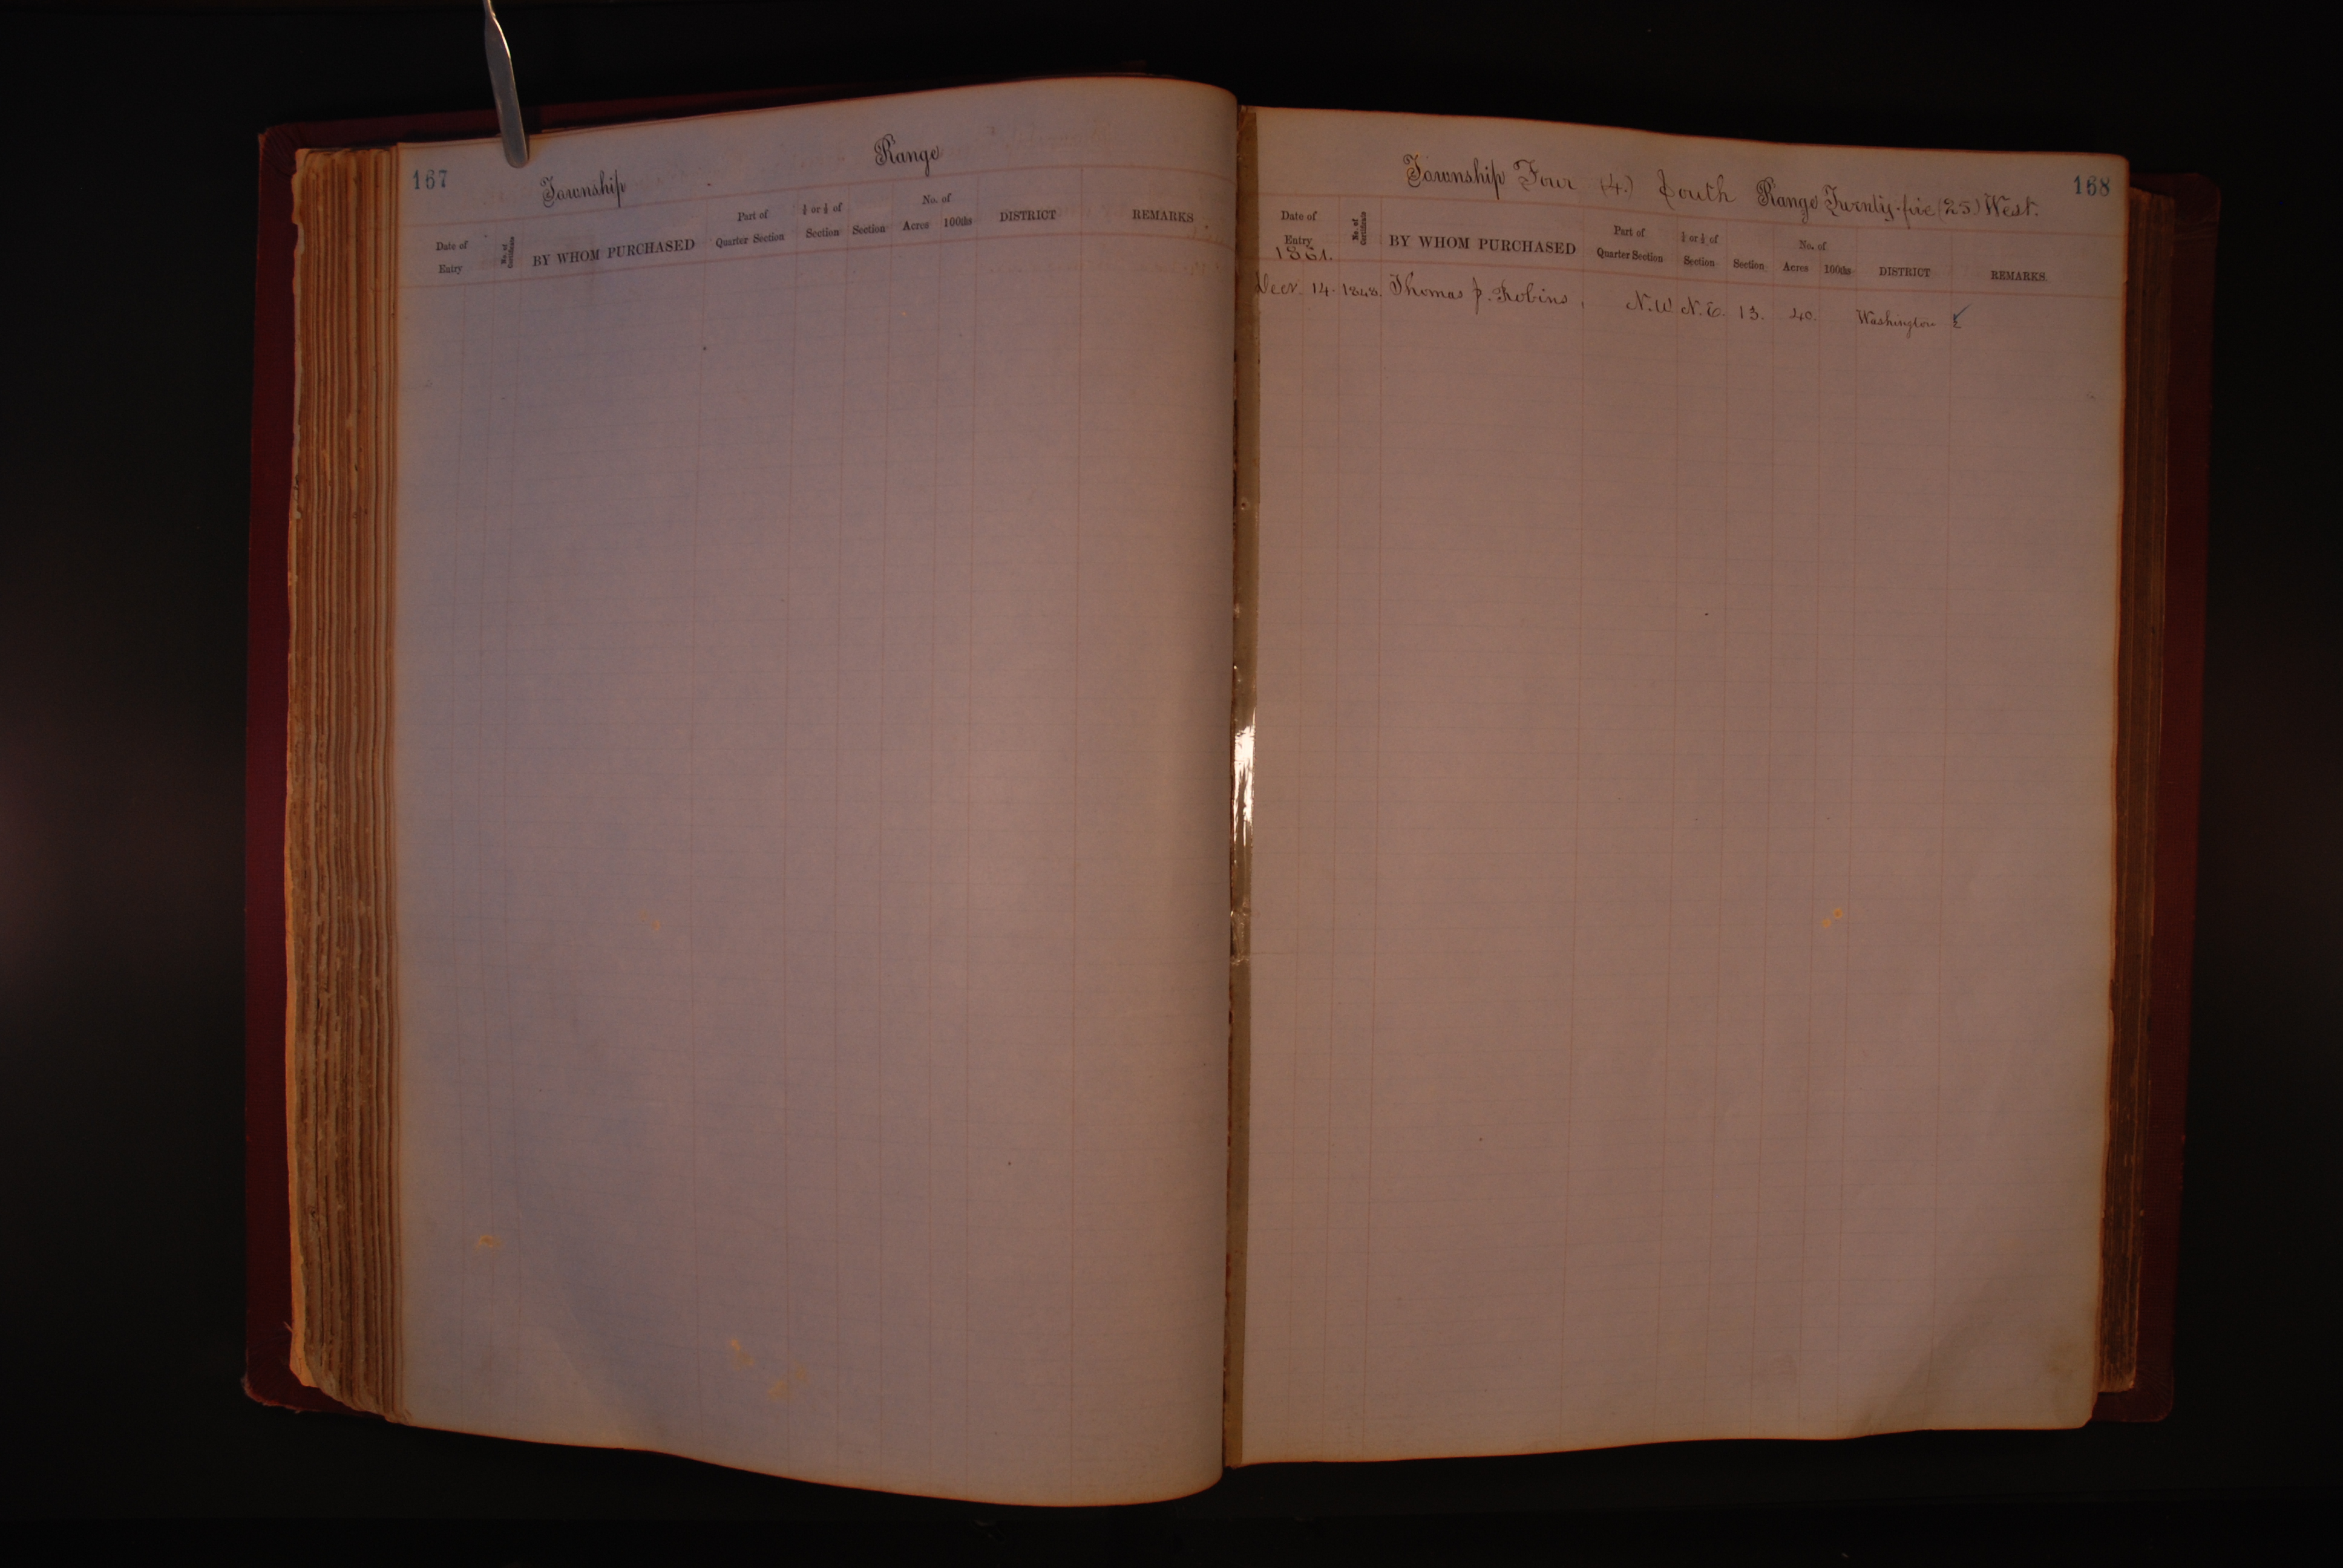 167
Township Range
Date of Entry No. of Certificate BY WHOM PURCHASED Part of Quarter Section ½ or ¼ of Section Section No. of Acres 100ths DISTRICT REMARKS
168
Township Four (4.) South Range Twenty-five (25) West.
Date of Entry No. of Certificate BY WHOM PURCHASED Part of Quarter Section ½ or ¼ of Section Section No. of Acres 100ths DISTRICT REMARKS
1861.
Decr. 14. 1848. Thomas J. Robins, N.W N.E. 13. 40. Washington